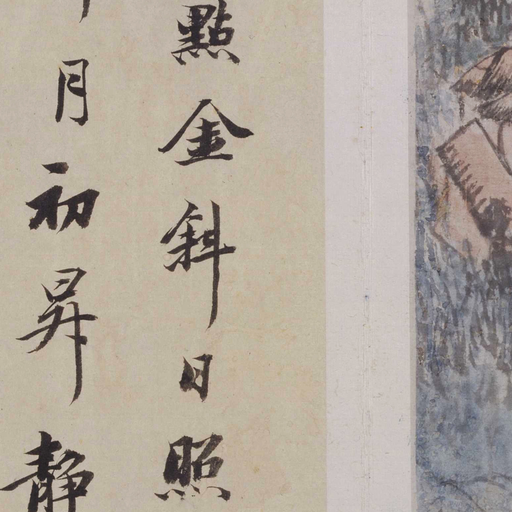 點金斜日照
月初昇靜